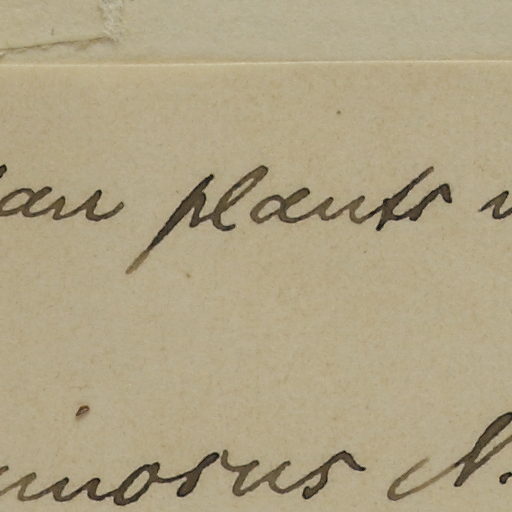 ian plants
inosus N.